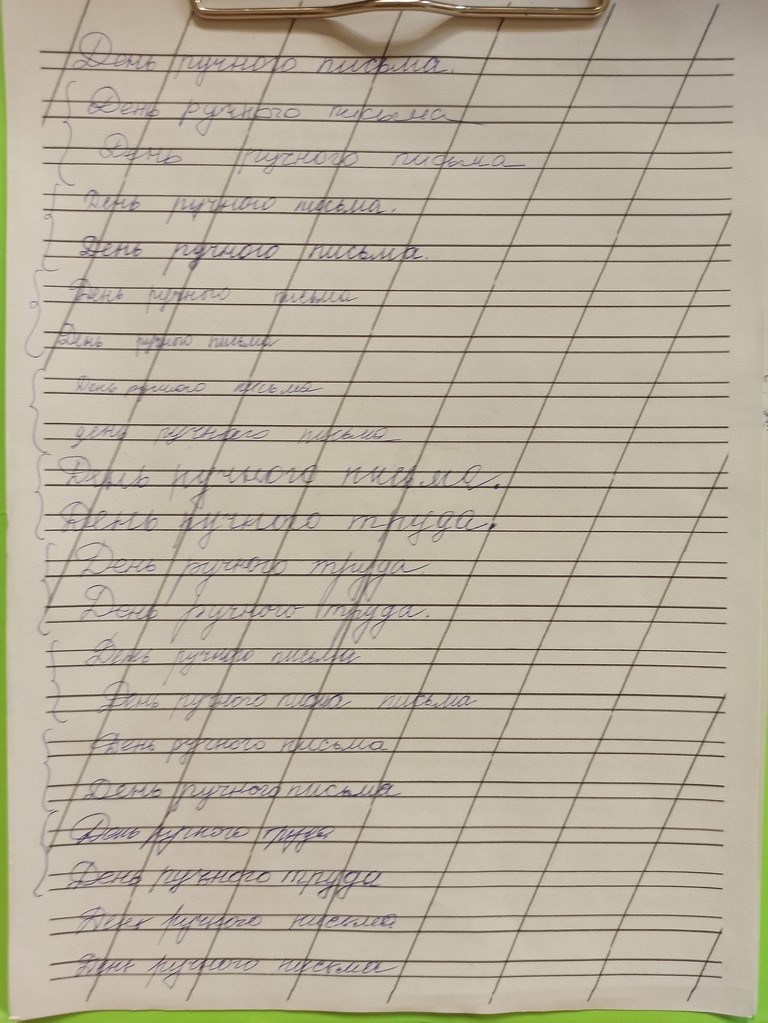 День ручного письма.
День ручного письма
День ручного письма
День ручного письма.
День ручного письма.
День ручного письма
День ручного письма
День ручного письма
день ручного письма
День ручного письма.
День ручного труда.
День ручного труда.
День ручного труда.
День ручного письма
День ручного письма
День ручного письма
День ручного письма
День ручного труда
День ручного труда
День ручного письма
День ручного письма